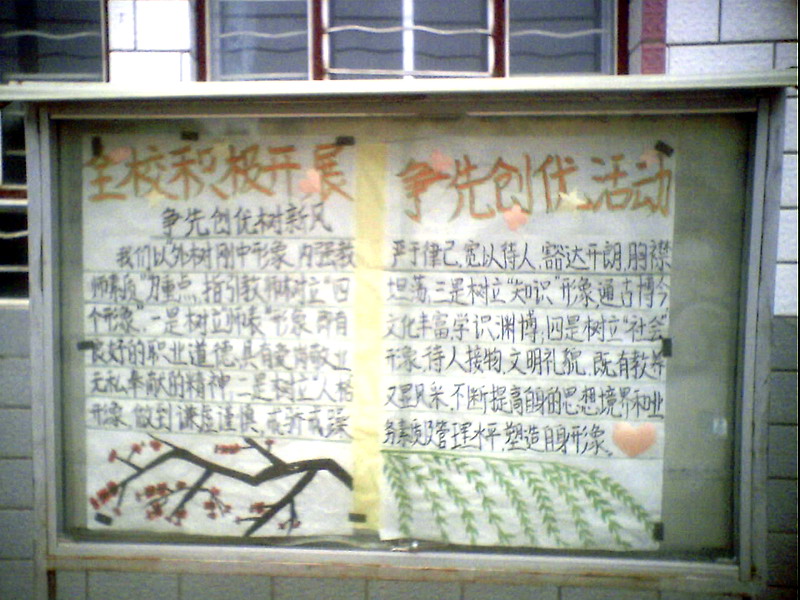 全校积极开展
争先创优树新风
我们以外树刚中形象,内强教
师素质"为重点,指引教师树立"四
个形象",一是树立"师表"形象,即有
良好的职业道德,具有爱岗敬业
无私奉献的精神,二是树立"人格"
形象,做到谦虚谨慎,戒骄戒躁
争先创优活动
严于律己,宽以待人,豁达开朗,胸襟
坦荡,三是树立"知识"形象,通古博今
文化丰富,学识渊博,四是树立"社会"
形象,待人接物,文明礼貌,既有教养
又显风采,不断提高自身的思想境界和业
务素质及管理水平,塑造自身形象。